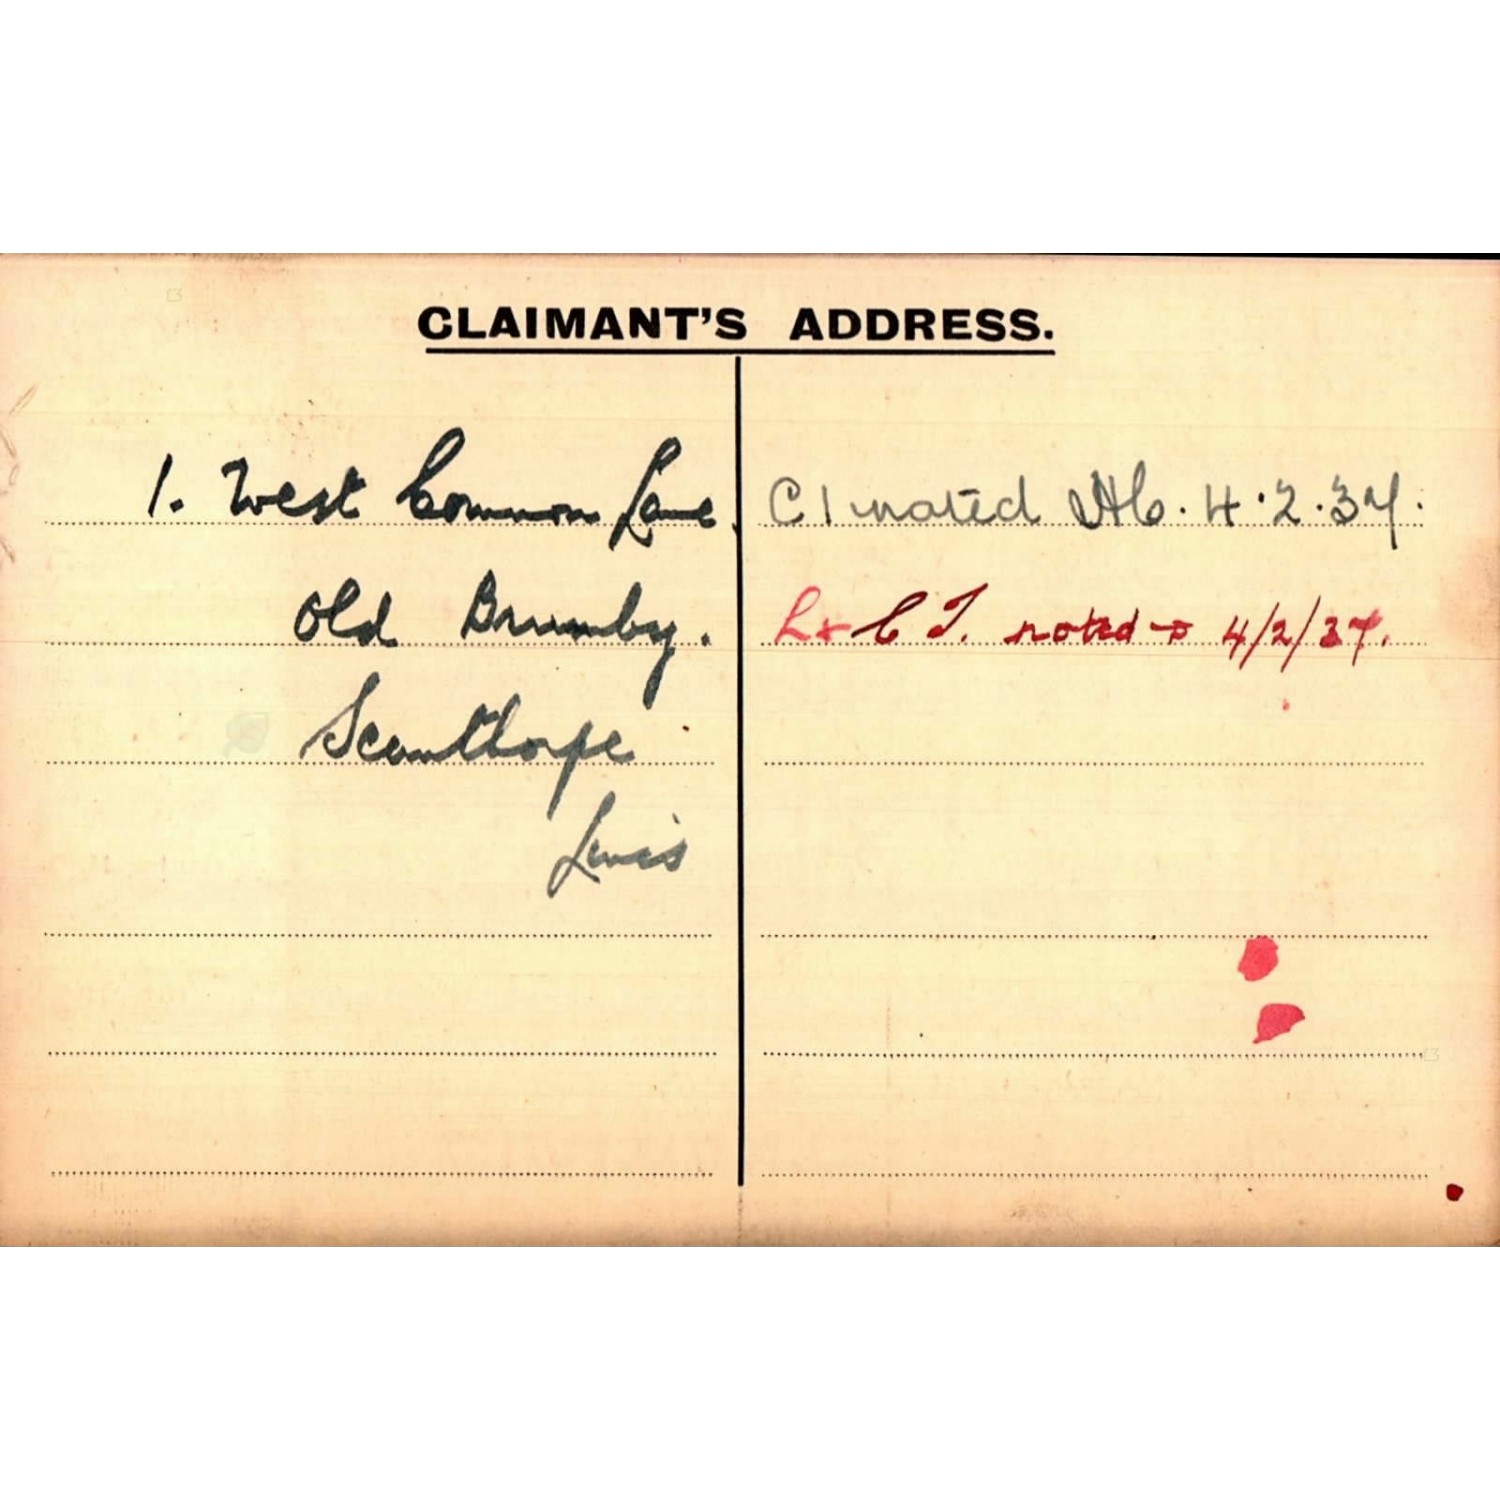 CLAIMANT'S ADDRESS.
1. West Common Lane.
Old Brumby.
Scunthorpe
Lincs
C I noted 4.2.37.
L & C I. noted 4/2/37.